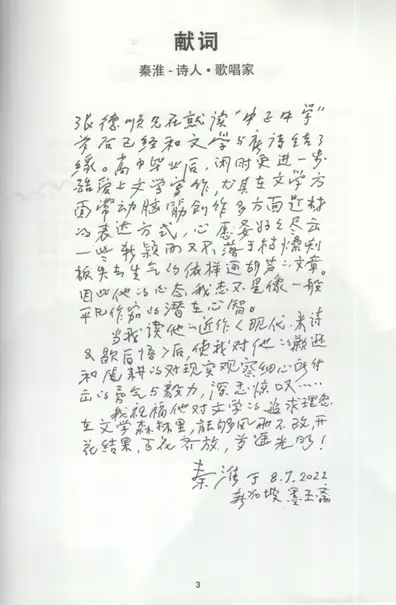 献词
秦淮 - 诗人 • 歌唱家
张德顺先在就读“中正中学”
前后已经和文学与廋诗结了
缘。高中毕业后，闲时更进一步
酷爱上文学写作，尤其在文学方
面常动脑筋创作多方面题材
的表达方式，心愿委婉尽出
一些新颖而又不落于枯燥刻
板失去生气的依样画葫芦文章。
因此他的心态，我想不是像一般
平凡作家的潜在心智。
当我读他的近作《现代·米诗
及歇后语》后，使我对他的
和 耕的对现实观察细心所付
出的勇气与毅力，深感惊叹……
我祝福他对文学的追求理想
在文学森林里，能够风雨不改，开
花结果，百花齐放，前途光明！
秦淮 于 8.7.2022
新加坡 墨玉斋
3